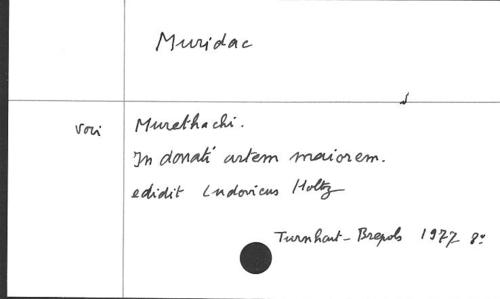 Muridac
Voir Murethachi.
In donati artem maiorem.
edidit Ludovicus Holtz
Turnhout-Brepols 1977 8º